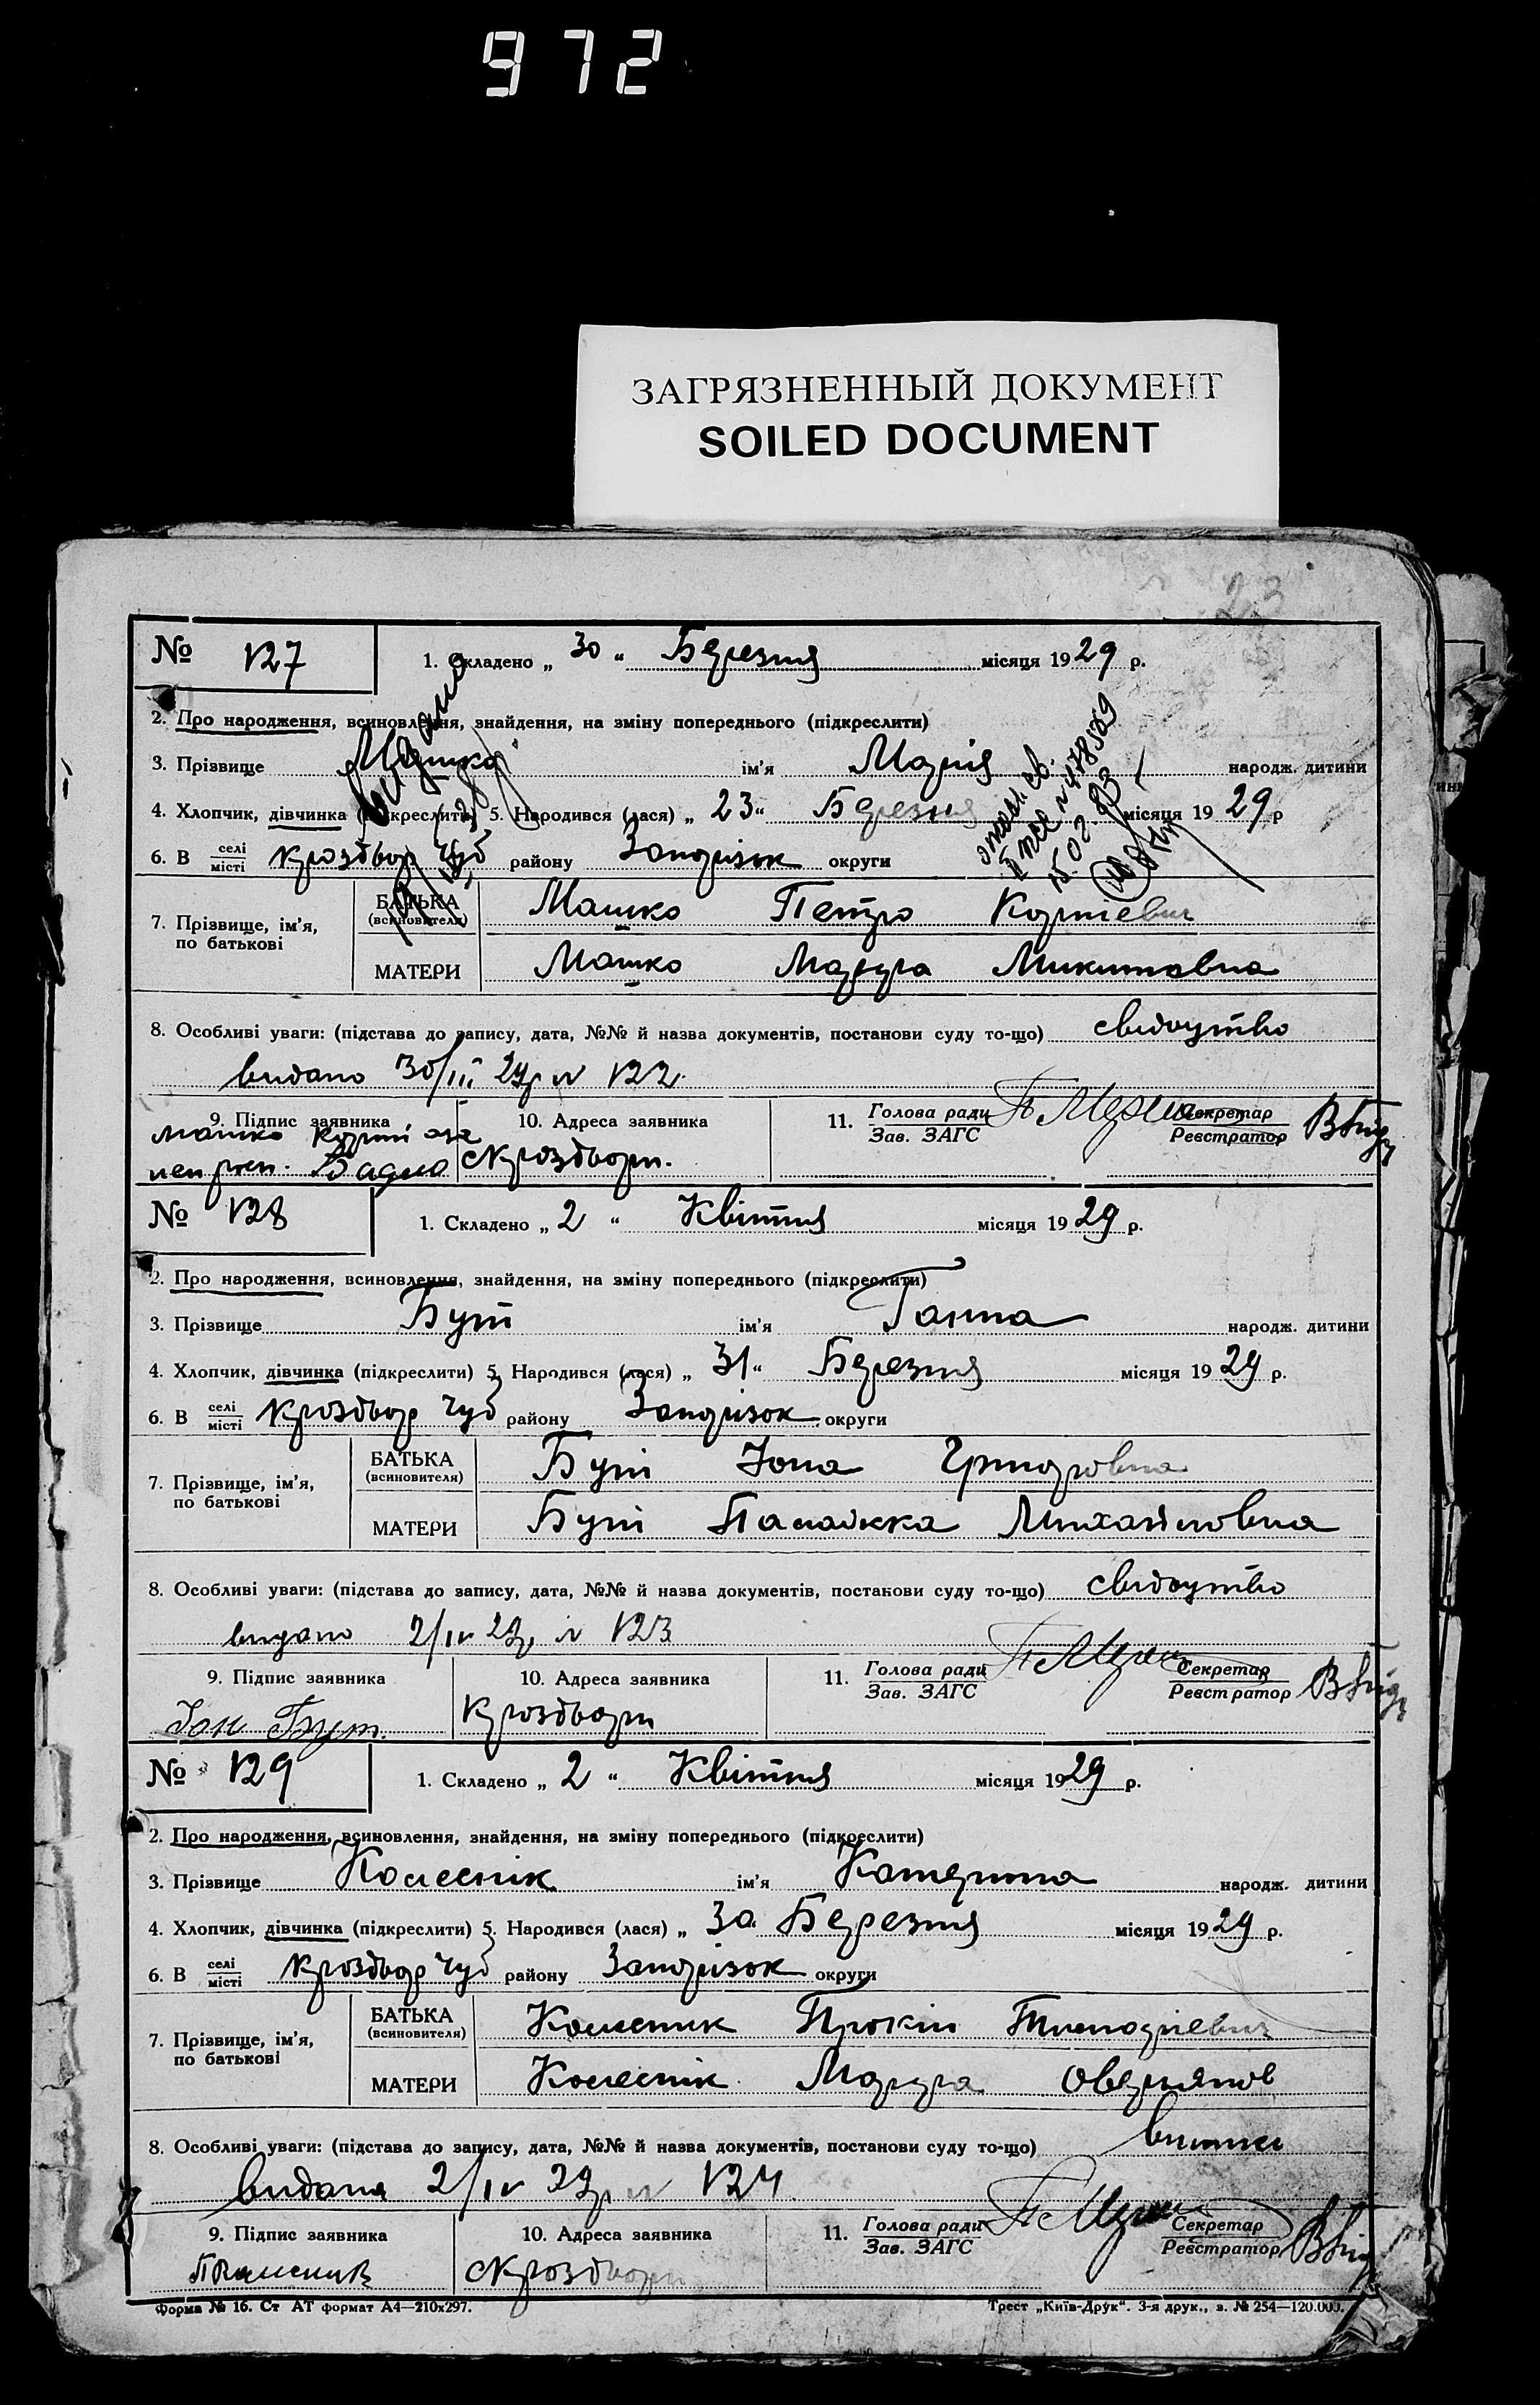 972
ЗАГРЯЗНЕННЫЙ ДОКУМЕНТ
SOILED DOCUMENT
23
№ 127 1. Складено „ 30 “ Березня місяця 1929 р.
2. Про народження, всиновлення, знайдення, на зміну попереднього (підкреслити)
3. Прізвище Машко ім'я Марія народж. дитини
4. Хлопчик, дівчинка (підкреслити) 5. Народився (лася) „ 23 “ Березня місяця 1929 р
6. В селі місті Кроздвор Чуб району Запорізьк округи
7. Прізвище, ім'я, по батькові
БАТЬКА (всиновителя) Машко Петро Корнієвич
МАТЕРИ Машко Марфа Микитовна
8. Особливі уваги: (підстава до запису, дата, №№ й назва документів, постанови суду то-що) свідоцтво
видано 30/III 29р N 122
9. Підпис заявника 10. Адреса заявника 11. Голова ради Зав. ЗАГС Секретар Реєстратор
Машко Корній
№ 128 1. Складено „ 2 “ Квітня місяця 1929 р.
2. Про народження, всиновлення, знайдення, на зміну попереднього (підкреслити)
3. Прізвище Бут ім'я Ганна народж. дитини
4. Хлопчик, дівчинка (підкреслити) 5. Народився (лася) „ 31 “ Березня місяця 1929 р.
6. В селі місті Кроздвор Чуб району Запорізок округи
7. Прізвище, ім'я, по батькові
БАТЬКА (всиновителя) Бут Іона Григоровна
МАТЕРИ Бут Палажка Михайловна
8. Особливі уваги: (підстава до запису, дата, №№ й назва документів, постанови суду то-що) свідоцтво
видано 2/IV 29р N 123
9. Підпис заявника 10. Адреса заявника 11. Голова ради Зав. ЗАГС Секретар Реєстратор
Іон Бут.
№ 129 1. Складено „ 2 “ Квітня місяця 1929 р.
2. Про народження, всиновлення, знайдення, на зміну попереднього (підкреслити)
3. Прізвище Колеснік ім'я Катерина народж. дитини
4. Хлопчик, дівчинка (підкреслити) 5. Народився (лася) „ 30 Березня місяця 1929 р.
6. В селі місті Кроздвор Чуб району Запорізок округи
7. Прізвище, ім'я, по батькові
БАТЬКА (всиновителя) Колесник Прокіп
МАТЕРИ Колеснік Марфа Оверянов
8. Особливі уваги: (підстава до запису, дата, №№ й назва документів, постанови суду то-що)
видана 2/IV 29р N 124
9. Підпис заявника 10. Адреса заявника 11. Голова ради Зав. ЗАГС Секретар Реєстратор
Форма № 16. Ст АТ формат А4—210х297. Трест „Київ-Друк“. 3-я друк., з. № 254—120.000.